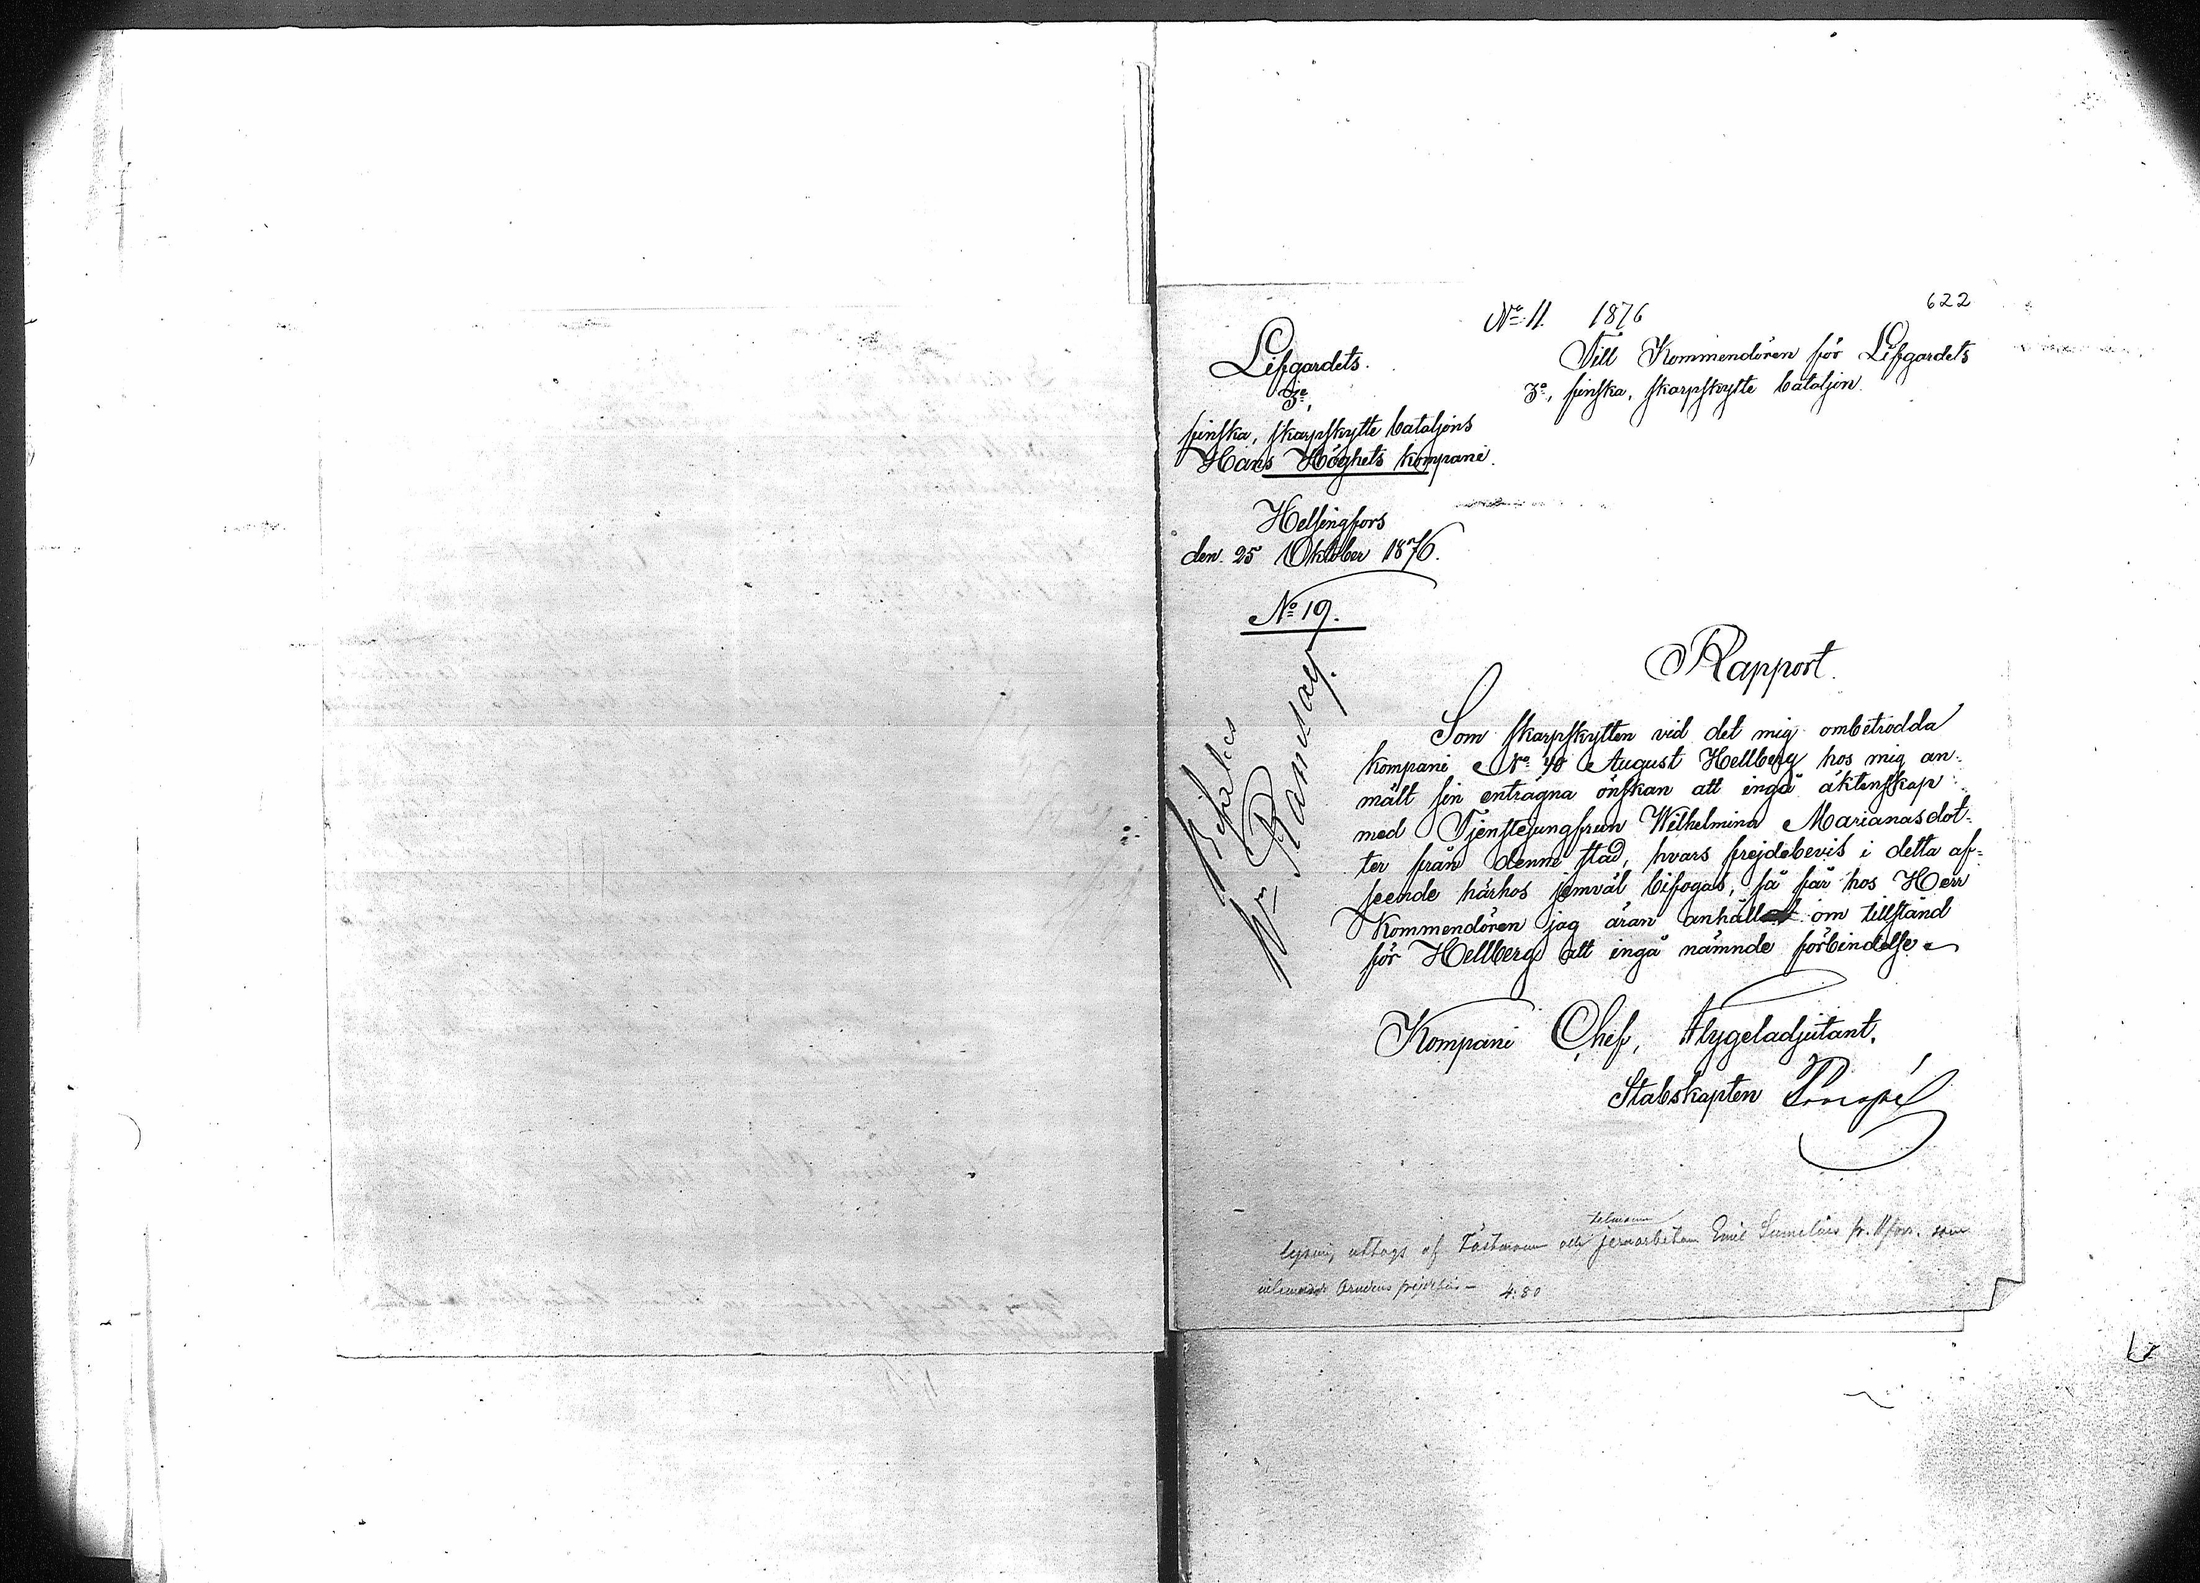 622
Nº 11. 1876
Lifgardets.
3e,
finska, skarpskytte bataljons
Hans Höghets kompani.
Helsingfors
den. 25 Oktober 1876.
Nº 19.
Till Kommendören för Lifgardets
3e, finska, skarpskytte bataljon.
Bifalles
Wm Ramsay.
Rapport.
Som skarpskytten vid det mig ombetrodda
kompani Nº 40 August Hellberg hos mig an-
mält sin enträgna önskan att ingå äktenskap
med Tjenstejungfrun Wilhelmina Marianasdot-
ter från denne stad, hvars frejdebevis i detta af-
seende härhos jemväl bifogas, så får hos Herr
Kommendören jag äran anhålla om tillstånd
för Hellberg att ingå nämnde förbindelse.
Kompani Chef, Flygeladjutant.
Stabskapten Procopé
lysning uttogs af och jernarbetaren Emil som
4:80